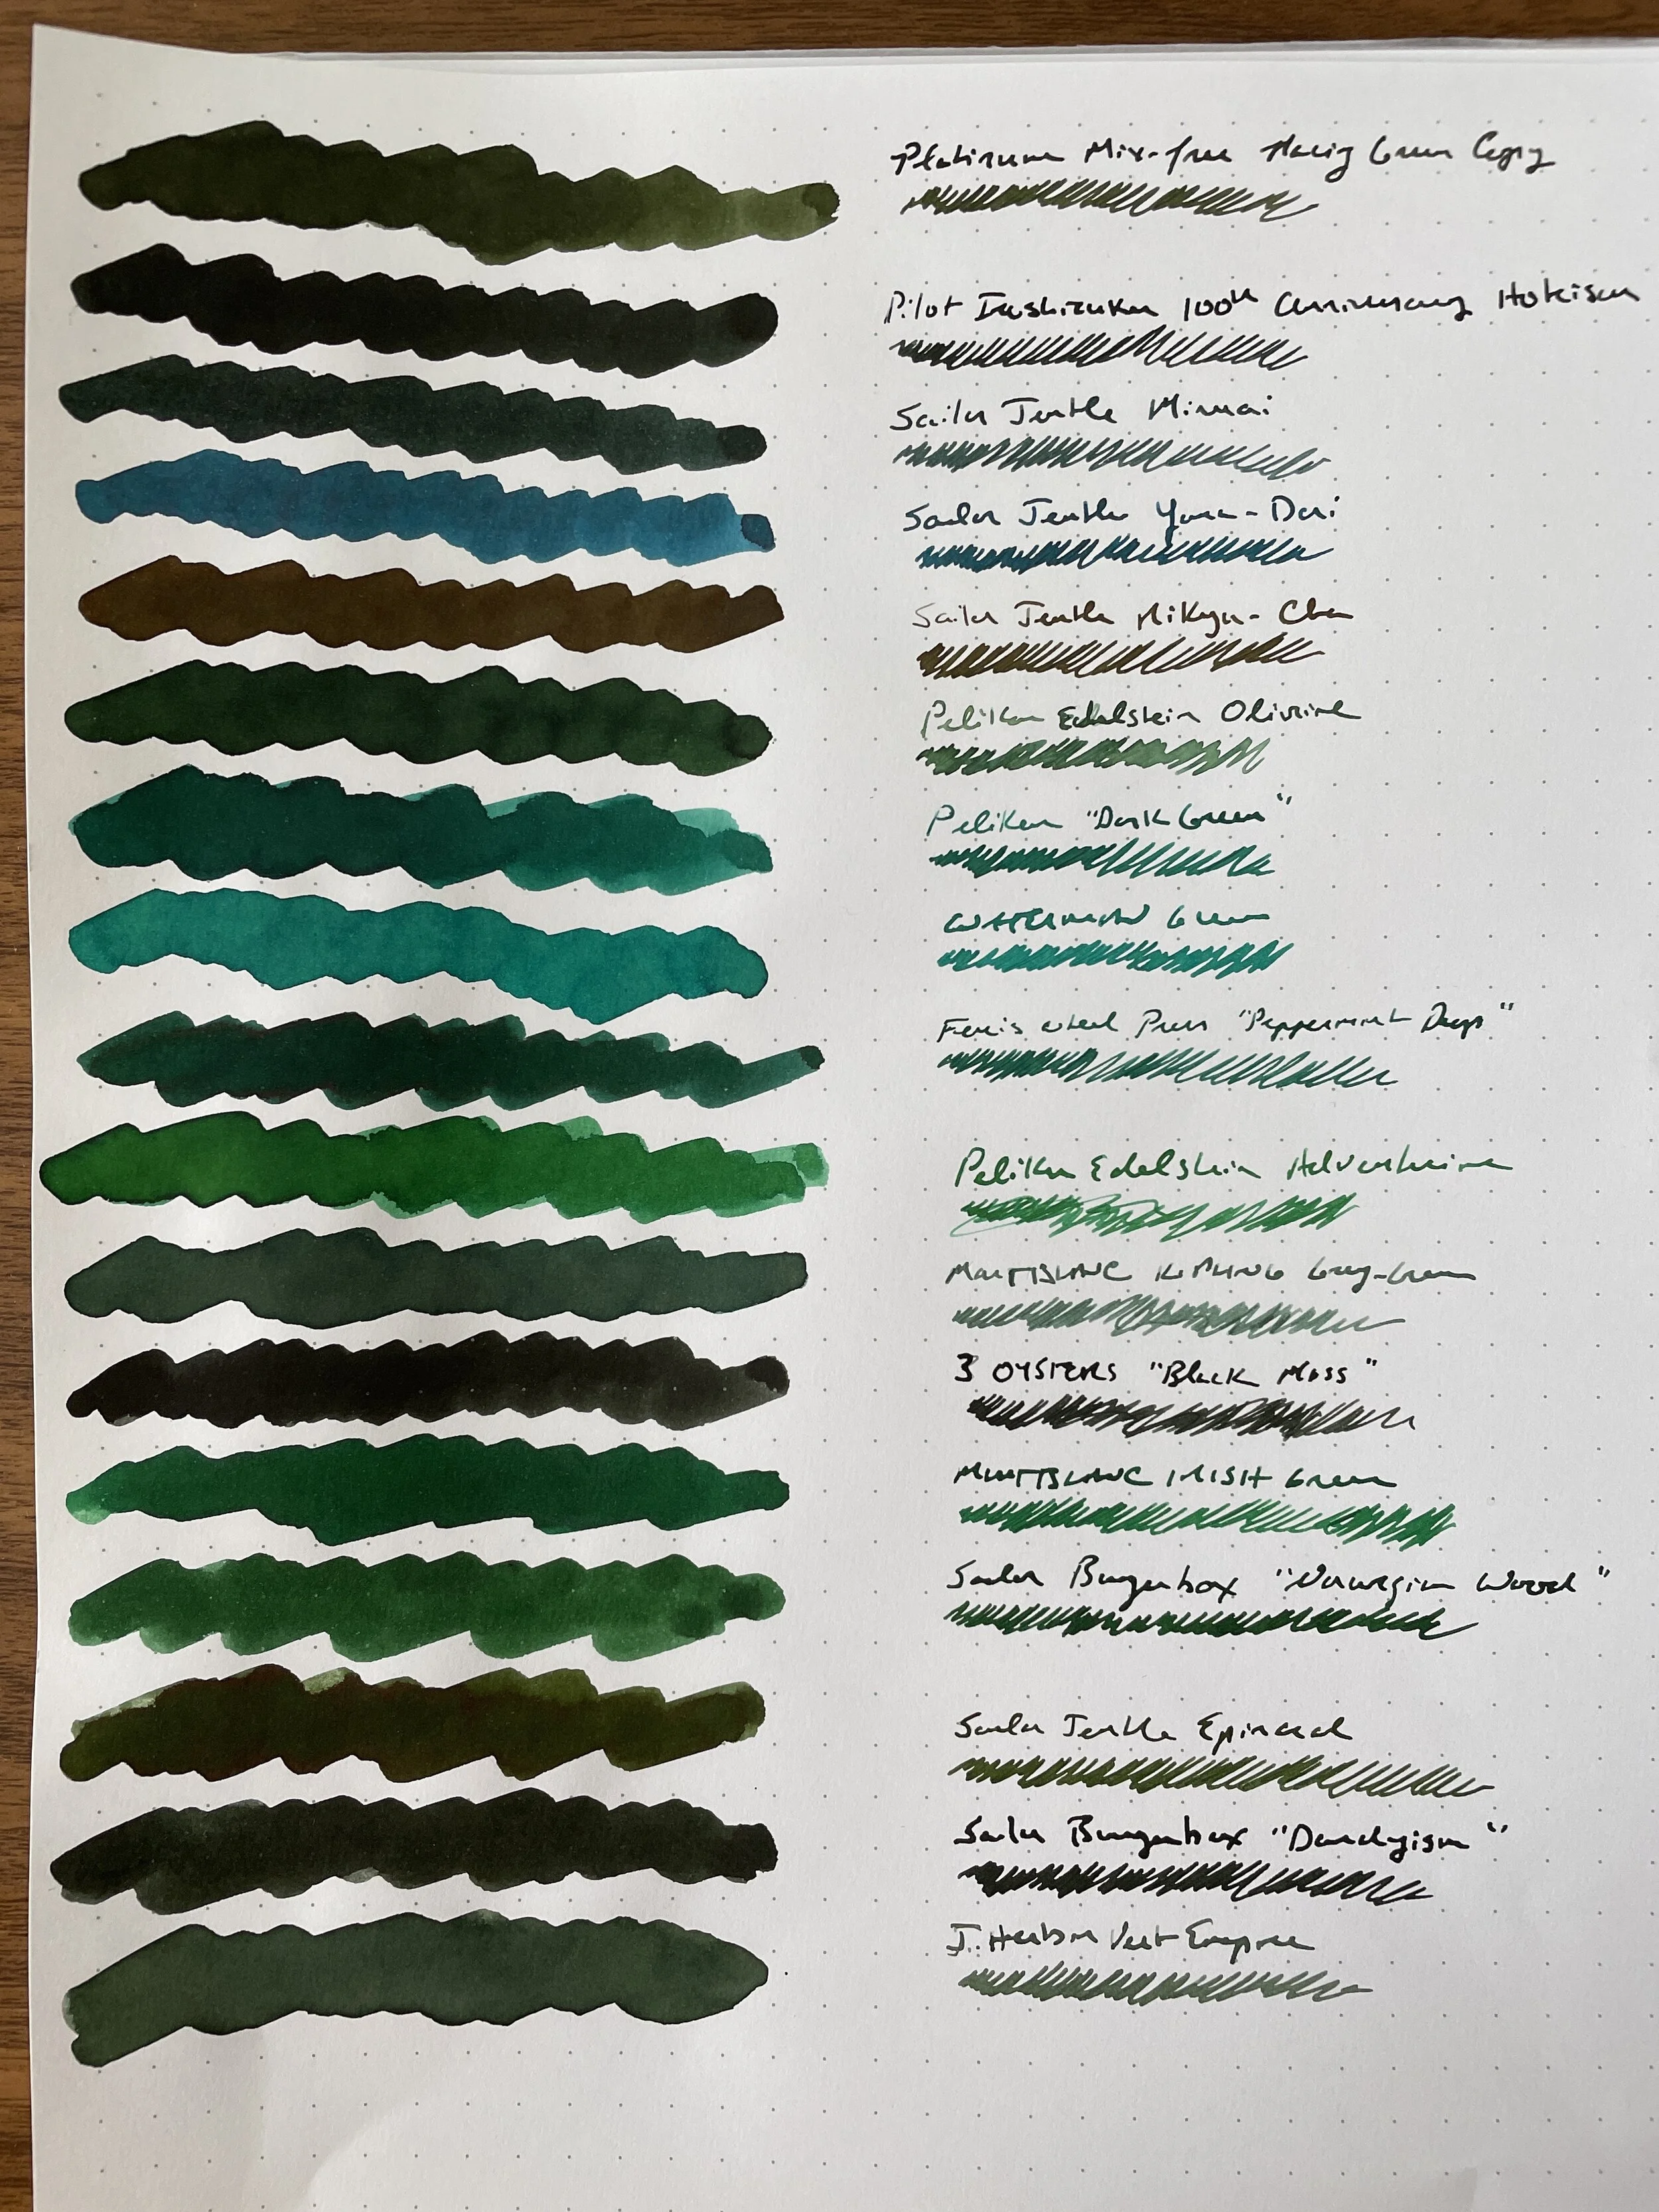 Platinum Mix-free Green Copy
Pilot Iroshizuku 100th Anniversary Hoteison
Sailor Jentle Miruai
Sailor Jentle Yama-Dori
Sailor Jentle Rikyu-Cha
Pelikan Edelstein Olivine
Pelikan "Dark Green"
WATERMAN Green
Ferris Wheel Press "Peppermint Drops"
Pelikan Edelstein Adventurine
MONTBLANC KIPLING Grey-Green
3 OYSTERS "Black Moss"
MONTBLANC IRISH Green
Sailor Bungubox "Norwegian Wood"
Sailor Jentle Epinard
Sailor Bungubox "Dandyism"
J. Herbin Vert Empire